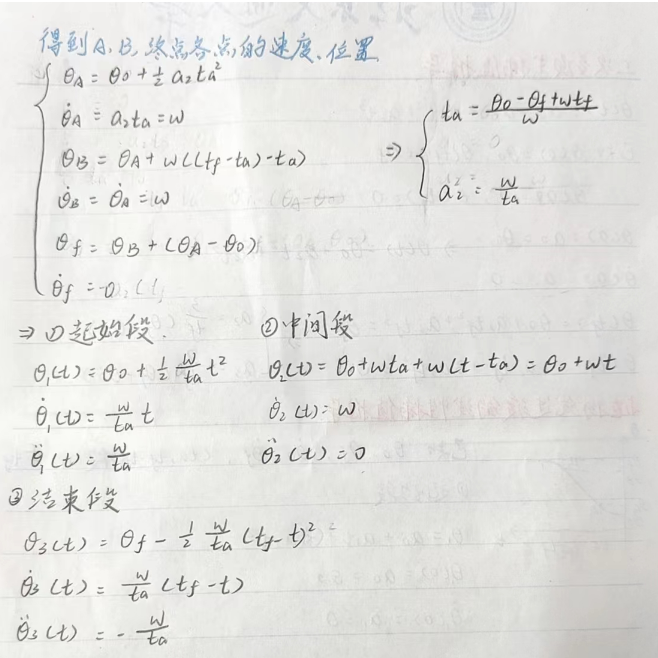 得到A、B、终点各点的速度、位置
θA = θ0 + 1/2 a2 ta²
θ̇A = a2 ta = w
θB = θA + w((tf - ta) - ta)
θ̇B = θ̇A = w
θf = θB + (θA - θ0)
θ̇f = 0
⇒ ta = (θ0 - θf + wtf)/w
a2 = w/ta
⇒ ①起始段
θ1(t) = θ0 + 1/2 w/ta t²
θ̇1(t) = w/ta t
θ̈1(t) = w/ta
②中间段
θ2(t) = θ0 + wta + w(t - ta) = θ0 + wt
θ̇2(t) = w
θ̈2(t) = 0
③结束段
θ3(t) = θf - 1/2 w/ta (tf - t)²
θ̇3(t) = w/ta (tf - t)
θ̈3(t) = - w/ta